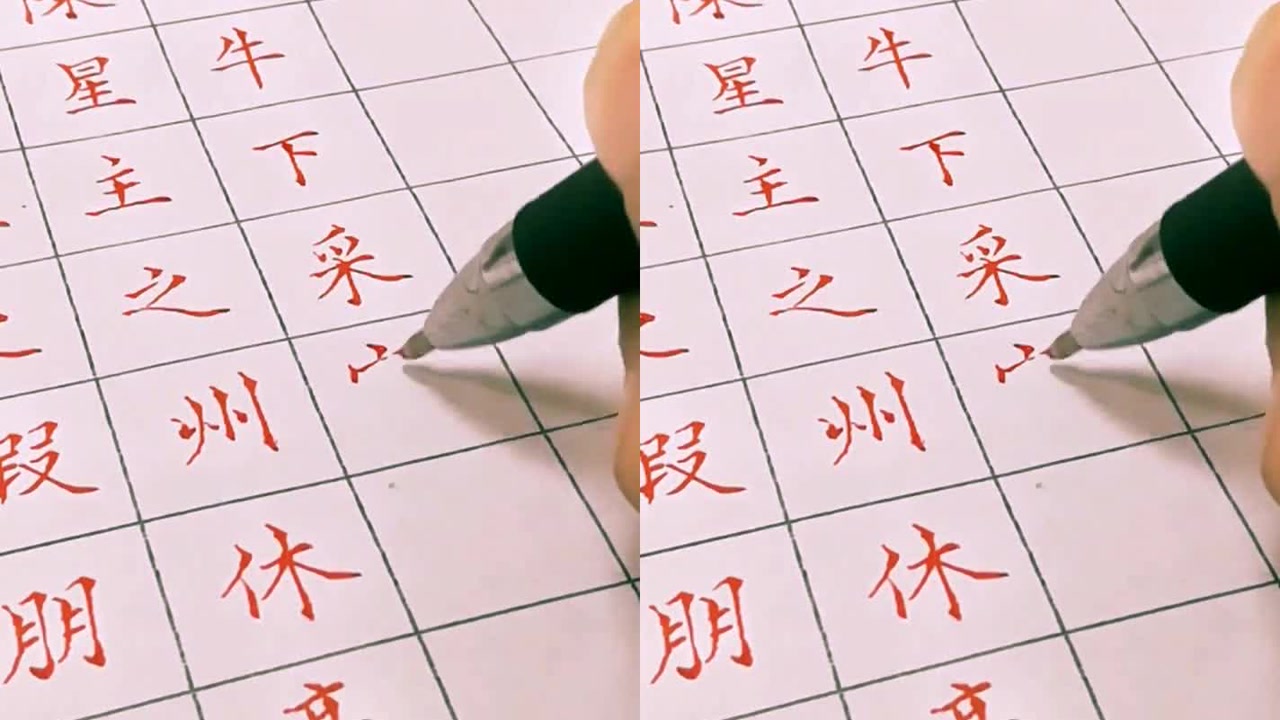 星 牛 星 牛
主 下 主 下
之 采 之 采
假 州 假 州
朋 休 朋 休